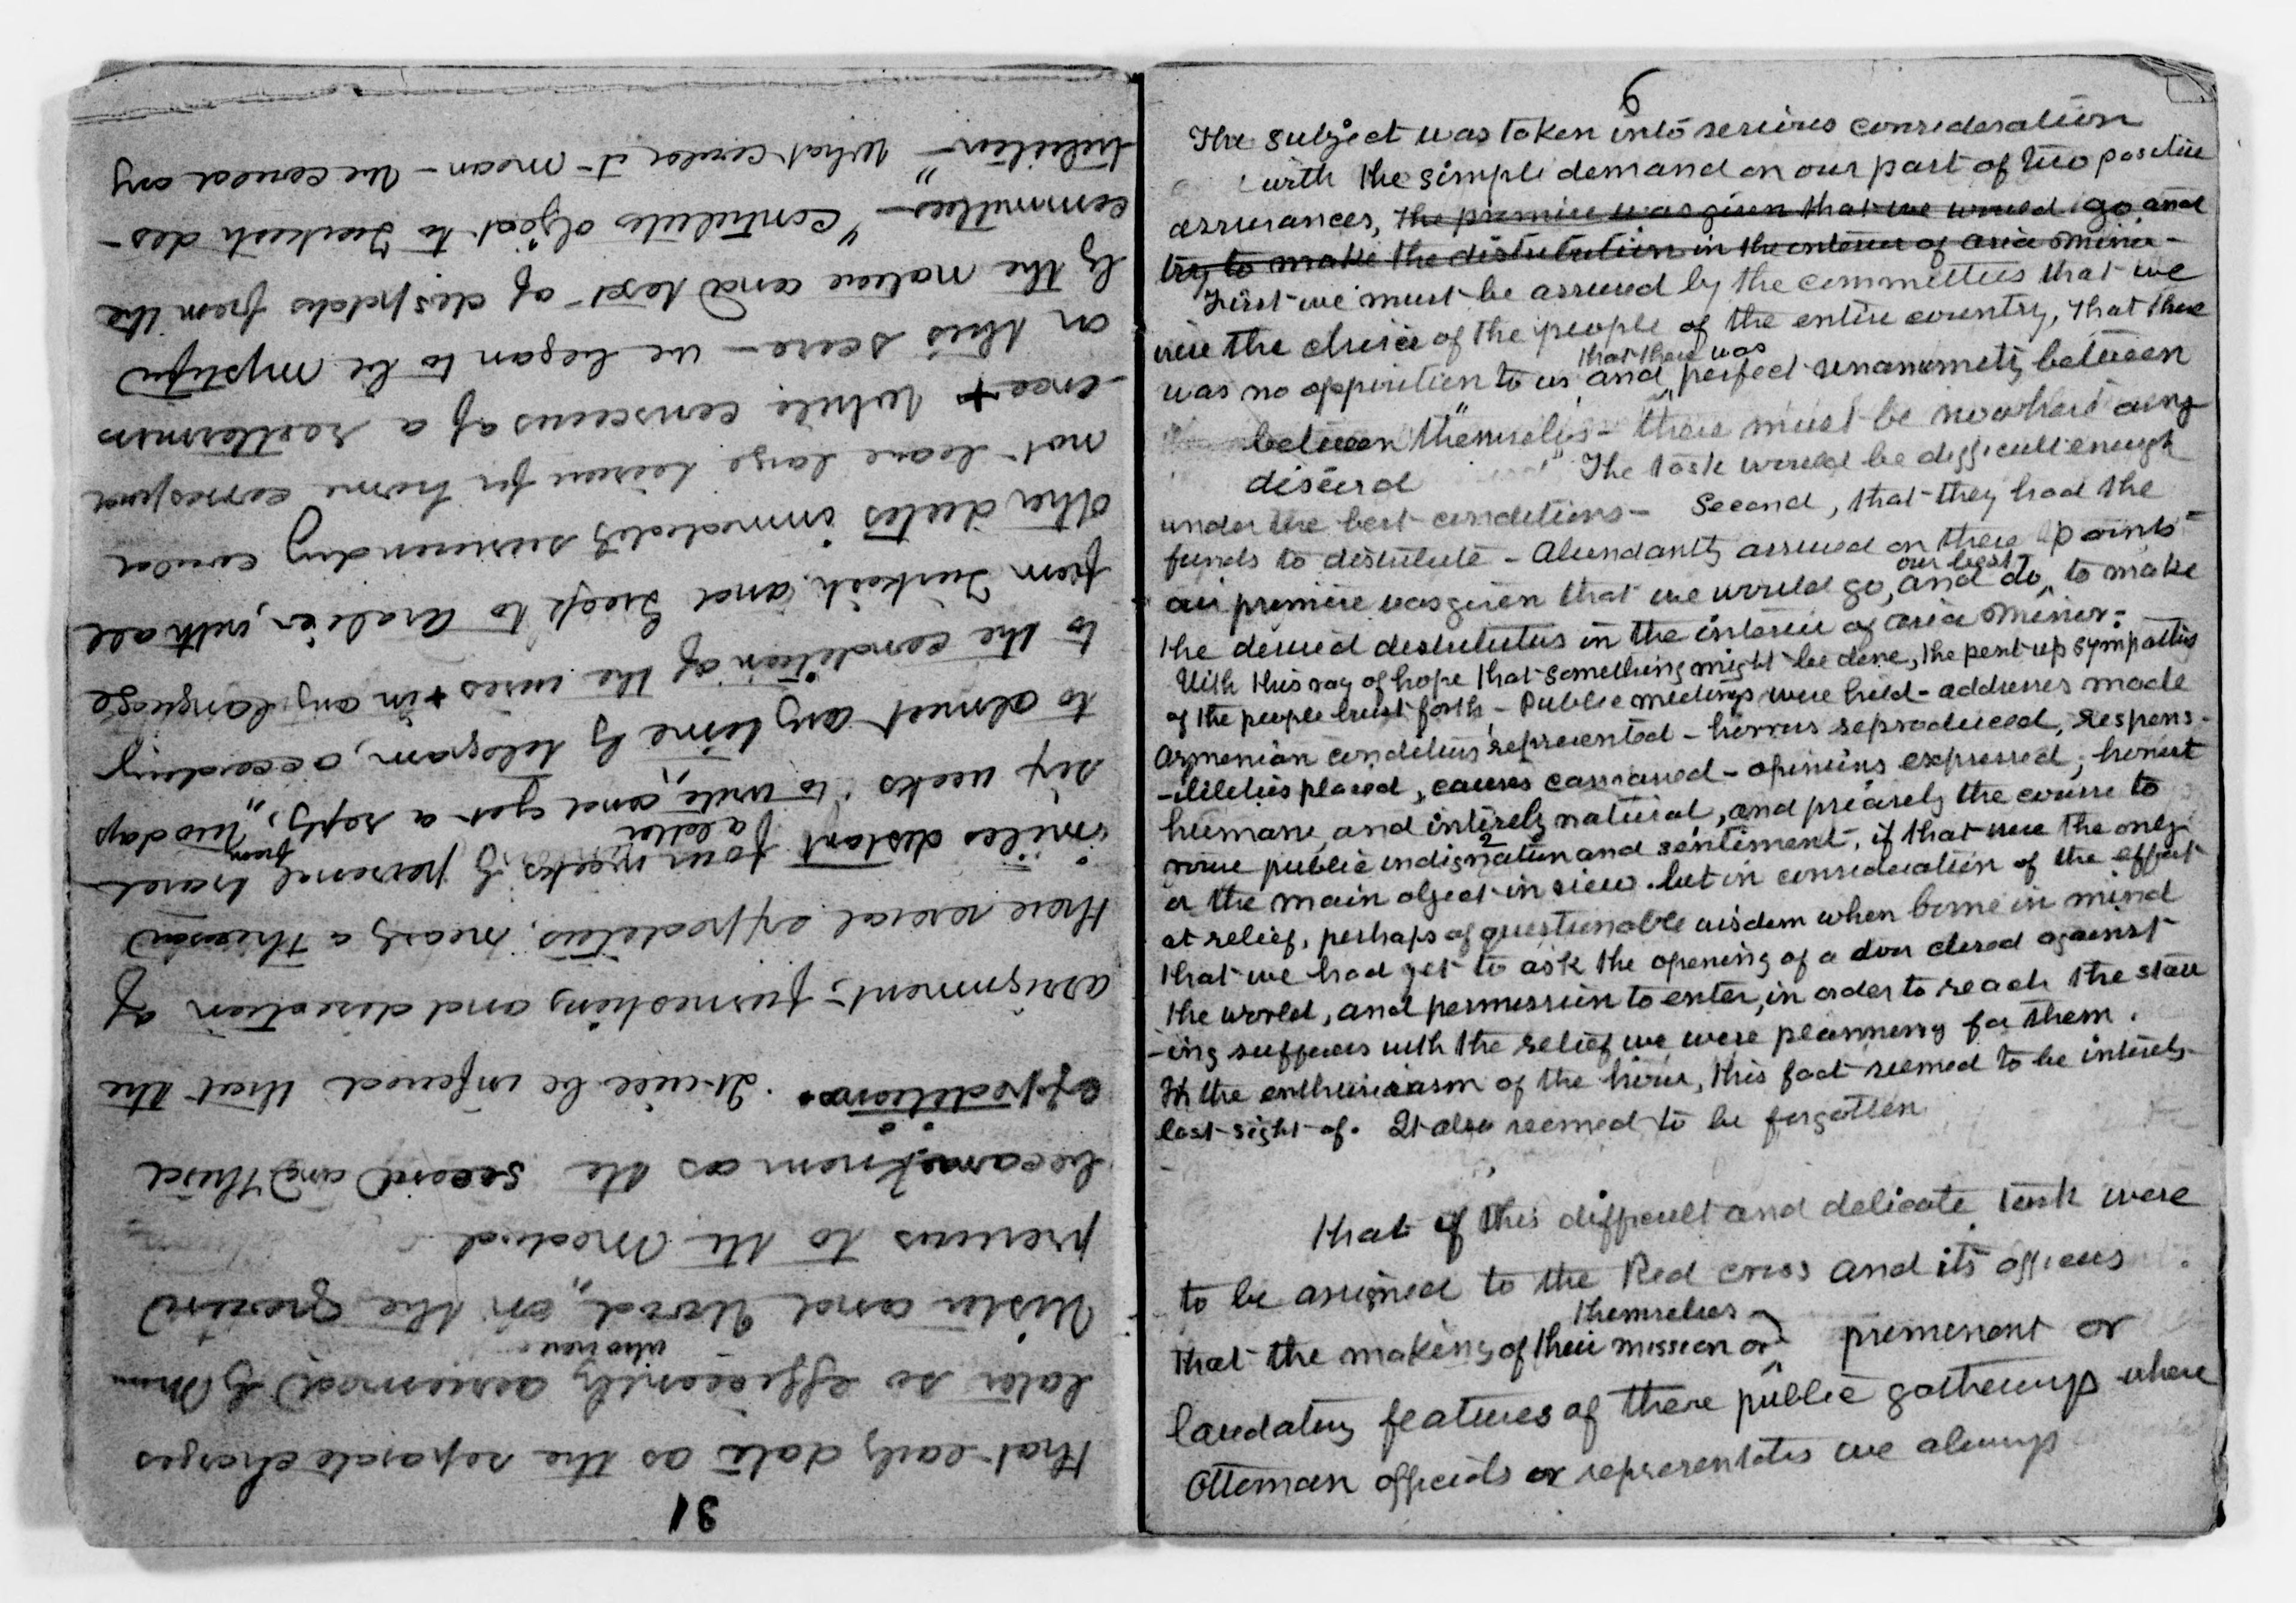 31
that early date as the separate charges
later so efficiently assumed by Messrs
who were
Wistar and Wood, "on the ground"
previous to the Medical
became known as the second and third
expeditions. It will be inferred that the
assignment, furnishing and direction of
these several expeditions, nearly a thousand
miles distant four weeks by personal travel
from a letter
six weeks to write and get a reply, two days
to almost any time by telegram, according
to the condition of the wires & in any language
from Turkish and Greek to Arabic, with all
other duties immediately surrounding could
not leave large leisure for home correspond
-ence + While conscious of a restlessness
on this score - we began to be mystified
by the nature and text of despatches from the
committees - "contributors object to Turkish des-
tribution" - What could it mean - We could any
6
The subject was taken into serious consideration
with the simple demand on our part of two positive
assurances, the promise was given that we would go and
try to make the distribution in the interior of asia Minor -
First we must be assured by the committees that we
were the choice of the people of the entire country, that there
that there was
was no opposition to us and perfect unanimity between
between "themselves - there must be nowhere any
discord" The task would be difficult enough
under the best conditions - Second, that they had the
funds to distribute - Abundantly assured on these points
our best
our promise was given that we would go, and do to make
the desired distribution in the interior of asia Minor.
With this ray of hope that something might be done, the pent up sympathies
of the people burst forth - Public meetings were held - addresses made
Armenian conditions represented - horrors reproduced, respons-
-ibilities placed, causes canvassed - opinions expressed; honest
humane, and entirely natural, and precisely the course to
rouse public indignation and sentiment, if that were the only
or the main object in view. but in consideration of the effort
at relief, perhaps of questionable wisdom when borne in mind
that we had yet to ask the opening of a door closed against
the world, and permission to enter, in order to reach the starv
-ing sufferers with the relief we were planning for them.
In the enthusiasm of the hour, this fact seemed to be entirely
lost sight of. It also seemed to be forgotten
that if this difficult and delicate task were
to be assigned to the Red cross and its officers
themselves
that the making of their mission or prominent or
laudatory features of these public gatherings where
Ottoman officials or representatives we always